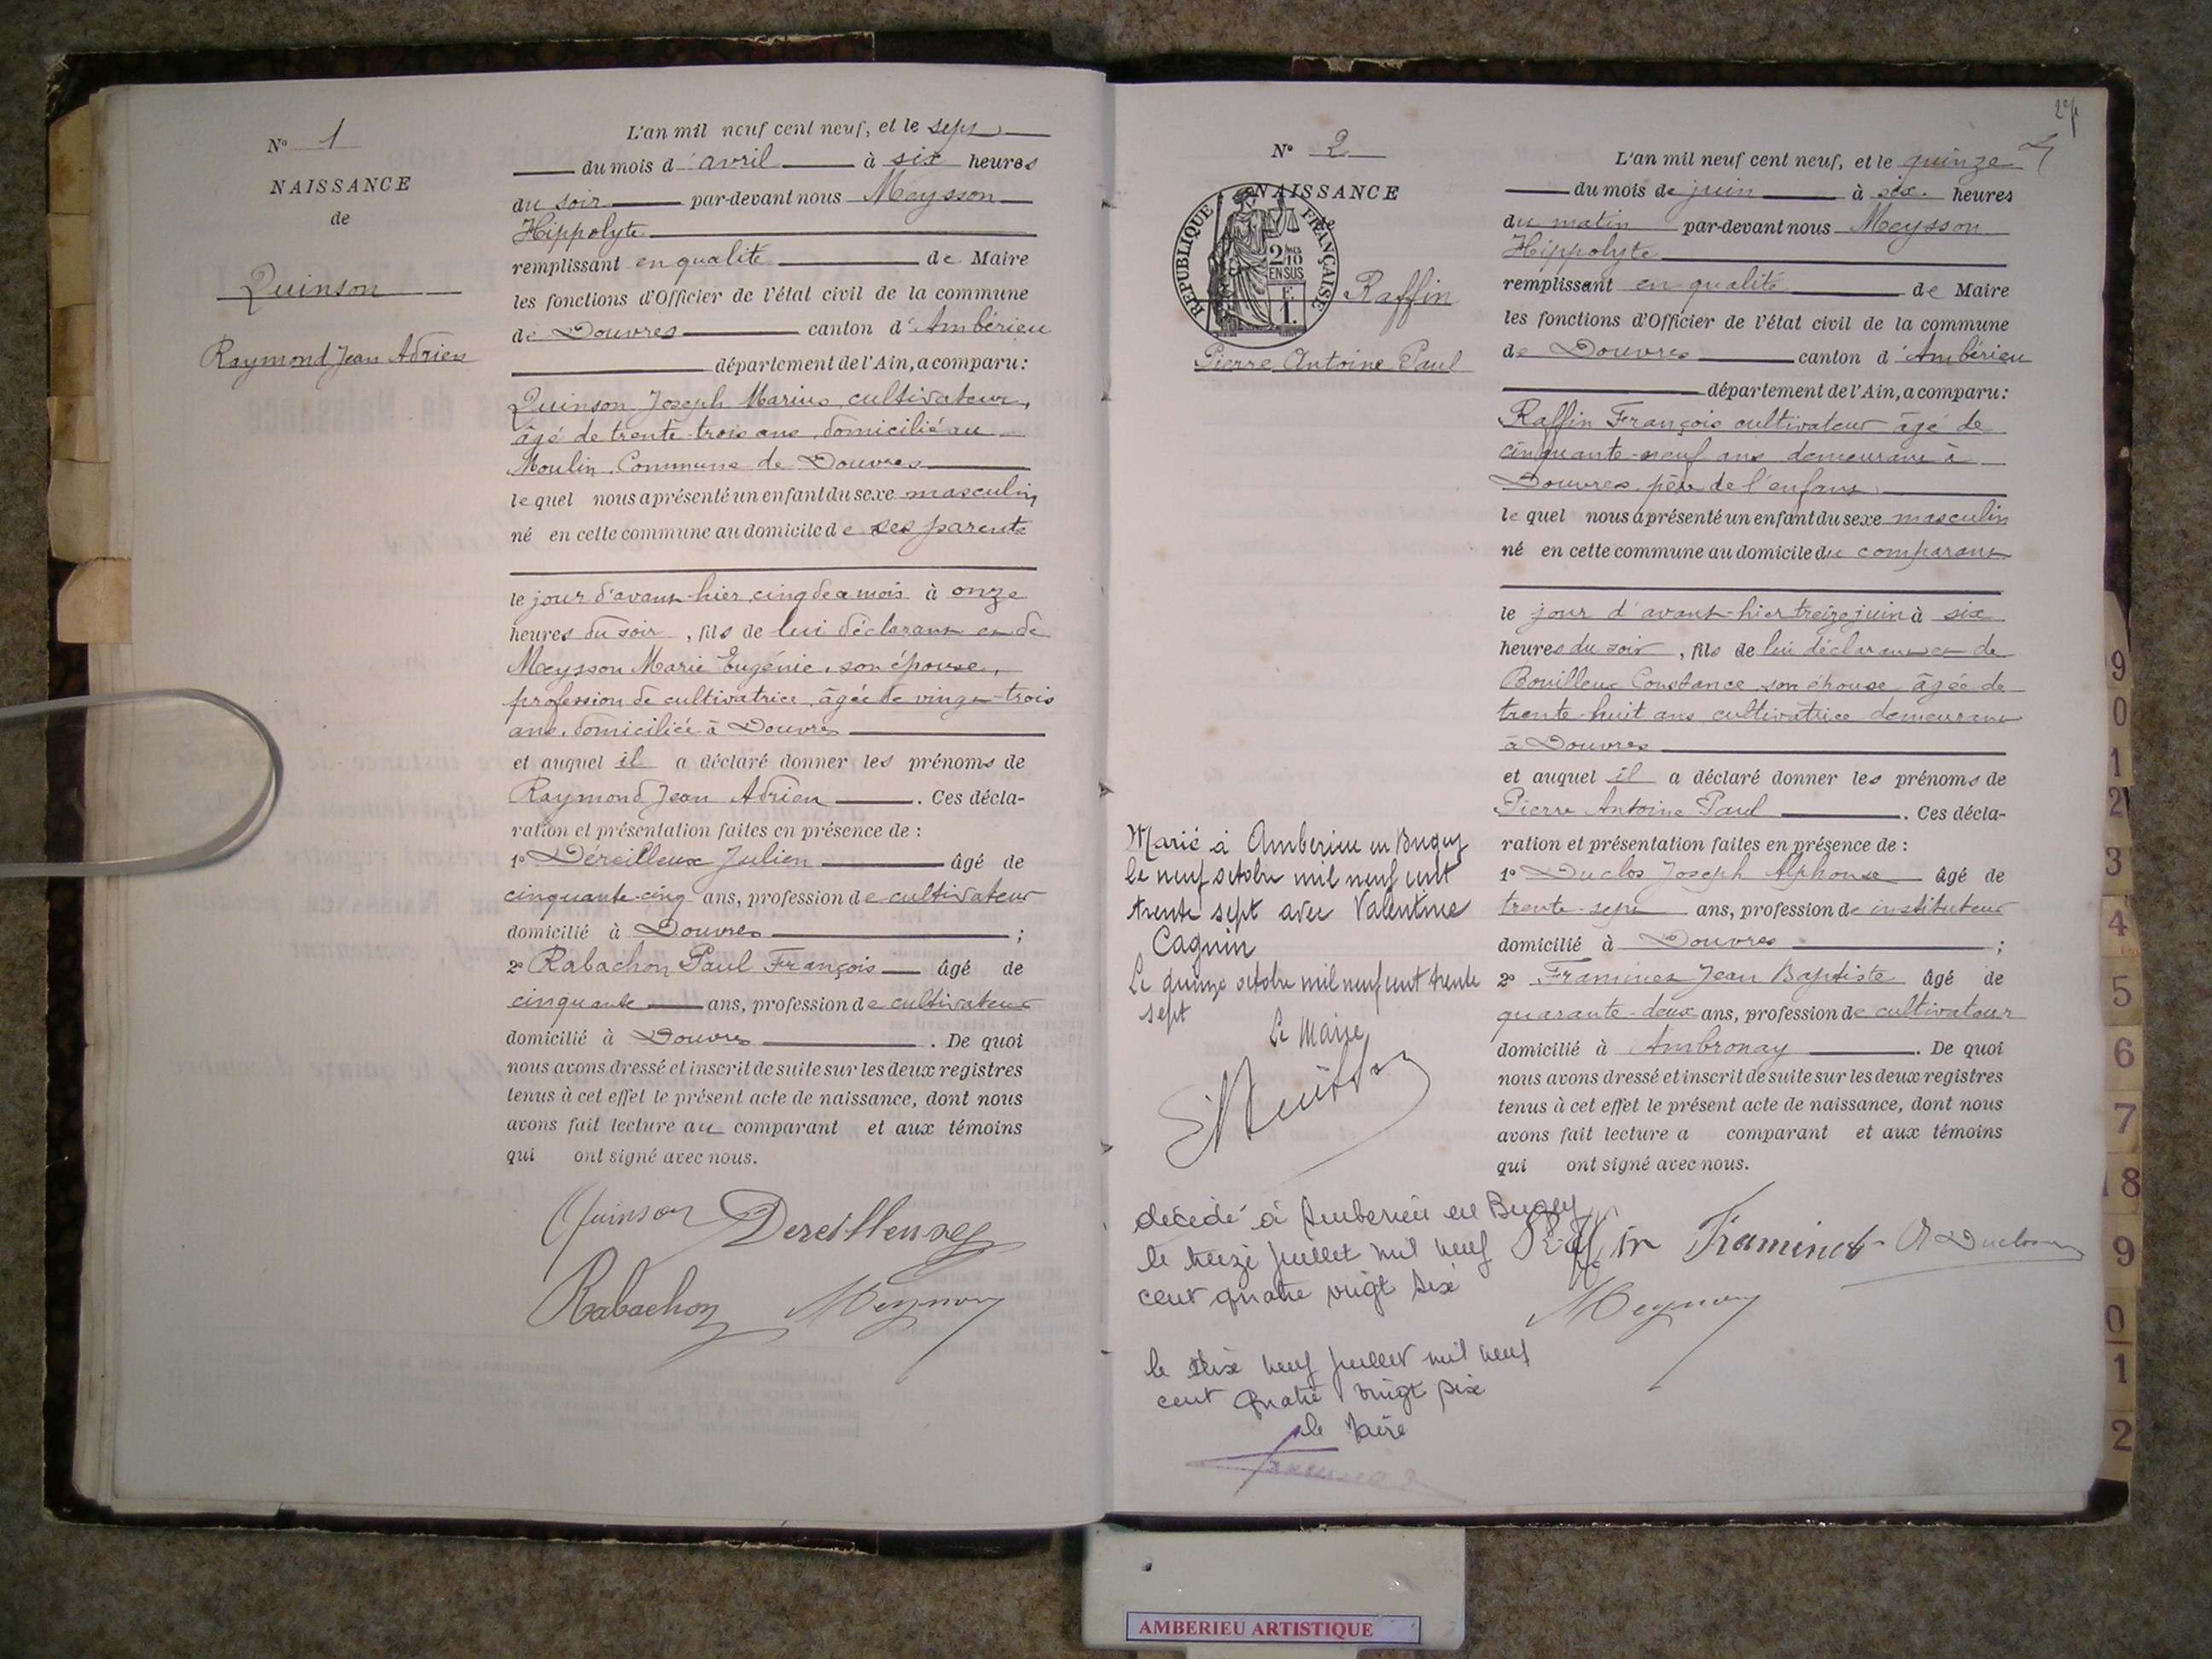 N° 1
NAISSANCE
de
Quinson
Raymond Jean Adrien
L'an mil neuf cent neuf, et le sept
du mois d'avril à six heures
du soir par-devant nous Meysson
Hippolyte
remplissant en qualité de Maire
les fonctions d'Officier de l'état civil de la commune
de Douvres canton d'Ambérieu
département de l'Ain, a comparu:
Quinson Joseph Marius, cultivateur,
âgé de trente-trois ans, domicilié au
Moulin, Commune de Douvres
lequel nous a présenté un enfant du sexe masculin
né en cette commune au domicile de ses parents
le jour d'avant-hier, cinq de a mois à onze
heures du soir, fils de lui déclarant et de
Meysson Marie Eugénie, son épouse,
profession de cultivatrice, âgée de vingt-trois
ans, domiciliée à Douvres
et auquel il a déclaré donner les prénoms de
Raymond Jean Adrien. Ces décla-
ration et présentation faites en présence de :
1° Déreilleux Julien âgé de
cinquante-cinq ans, profession de cultivateur
domicilié à Douvres ;
2° Rabachon Paul François âgé de
cinquante ans, profession de cultivateur
domicilié à Douvres. De quoi
nous avons dressé et inscrit de suite sur les deux registres
tenus à cet effet le présent acte de naissance, dont nous
avons fait lecture au comparant et aux témoins
qui ont signé avec nous.
Quinson Dereilleux
Rabachon Meysson
N° 2
NAISSANCE
REPUBLIQUE FRANÇAISE
2/10 EN SUS
Raffin
Pierre Antoine Paul
L'an mil neuf cent neuf, et le quinze
du mois de juin à six heures
du matin par-devant nous Meysson
Hippolyte
remplissant en qualité de Maire
les fonctions d'Officier de l'état civil de la commune
de Douvres canton d'Ambérieu
département de l'Ain, a comparu:
Raffin François cultivateur âgé de
cinquante-neuf ans demeurant à
Douvres, père de l'enfant
lequel nous a présenté un enfant du sexe masculin
né en cette commune au domicile du comparant
le jour d'avant-hier treize juin à six
heures du soir, fils de lui déclarant et de
Bouilleux Constance son épouse âgée de
trente-huit ans cultivatrice demeurant
à Douvres
et auquel il a déclaré donner les prénoms de
Pierre Antoine Paul. Ces décla-
ration et présentation faites en présence de :
1° Duclos Joseph Alphonse âgé de
trente-sept ans, profession de instituteur
domicilié à Douvres ;
2° Framinet Jean Baptiste âgé de
quarante-deux ans, profession de cultivateur
domicilié à Ambronay. De quoi
nous avons dressé et inscrit de suite sur les deux registres
tenus à cet effet le présent acte de naissance, dont nous
avons fait lecture a comparant et aux témoins
qui ont signé avec nous.
Raffin Framinet A Duclos
Meysson
Marié à Amberieu en Bugey
le neuf octobre mil neuf cent
trente sept avec Valentine
Cagnin
Le quinze octobre mil neuf cent trente
sept
Le Maire
décédé à Amberieu en Bugey
le treize juillet mil neuf
cent quatre vingt six
le dix neuf juillet mil neuf
cent quatre vingt six
le Maire
9
0
1
2
3
4
5
6
7
8
9
0
1
2
AMBERIEU ARTISTIQUE